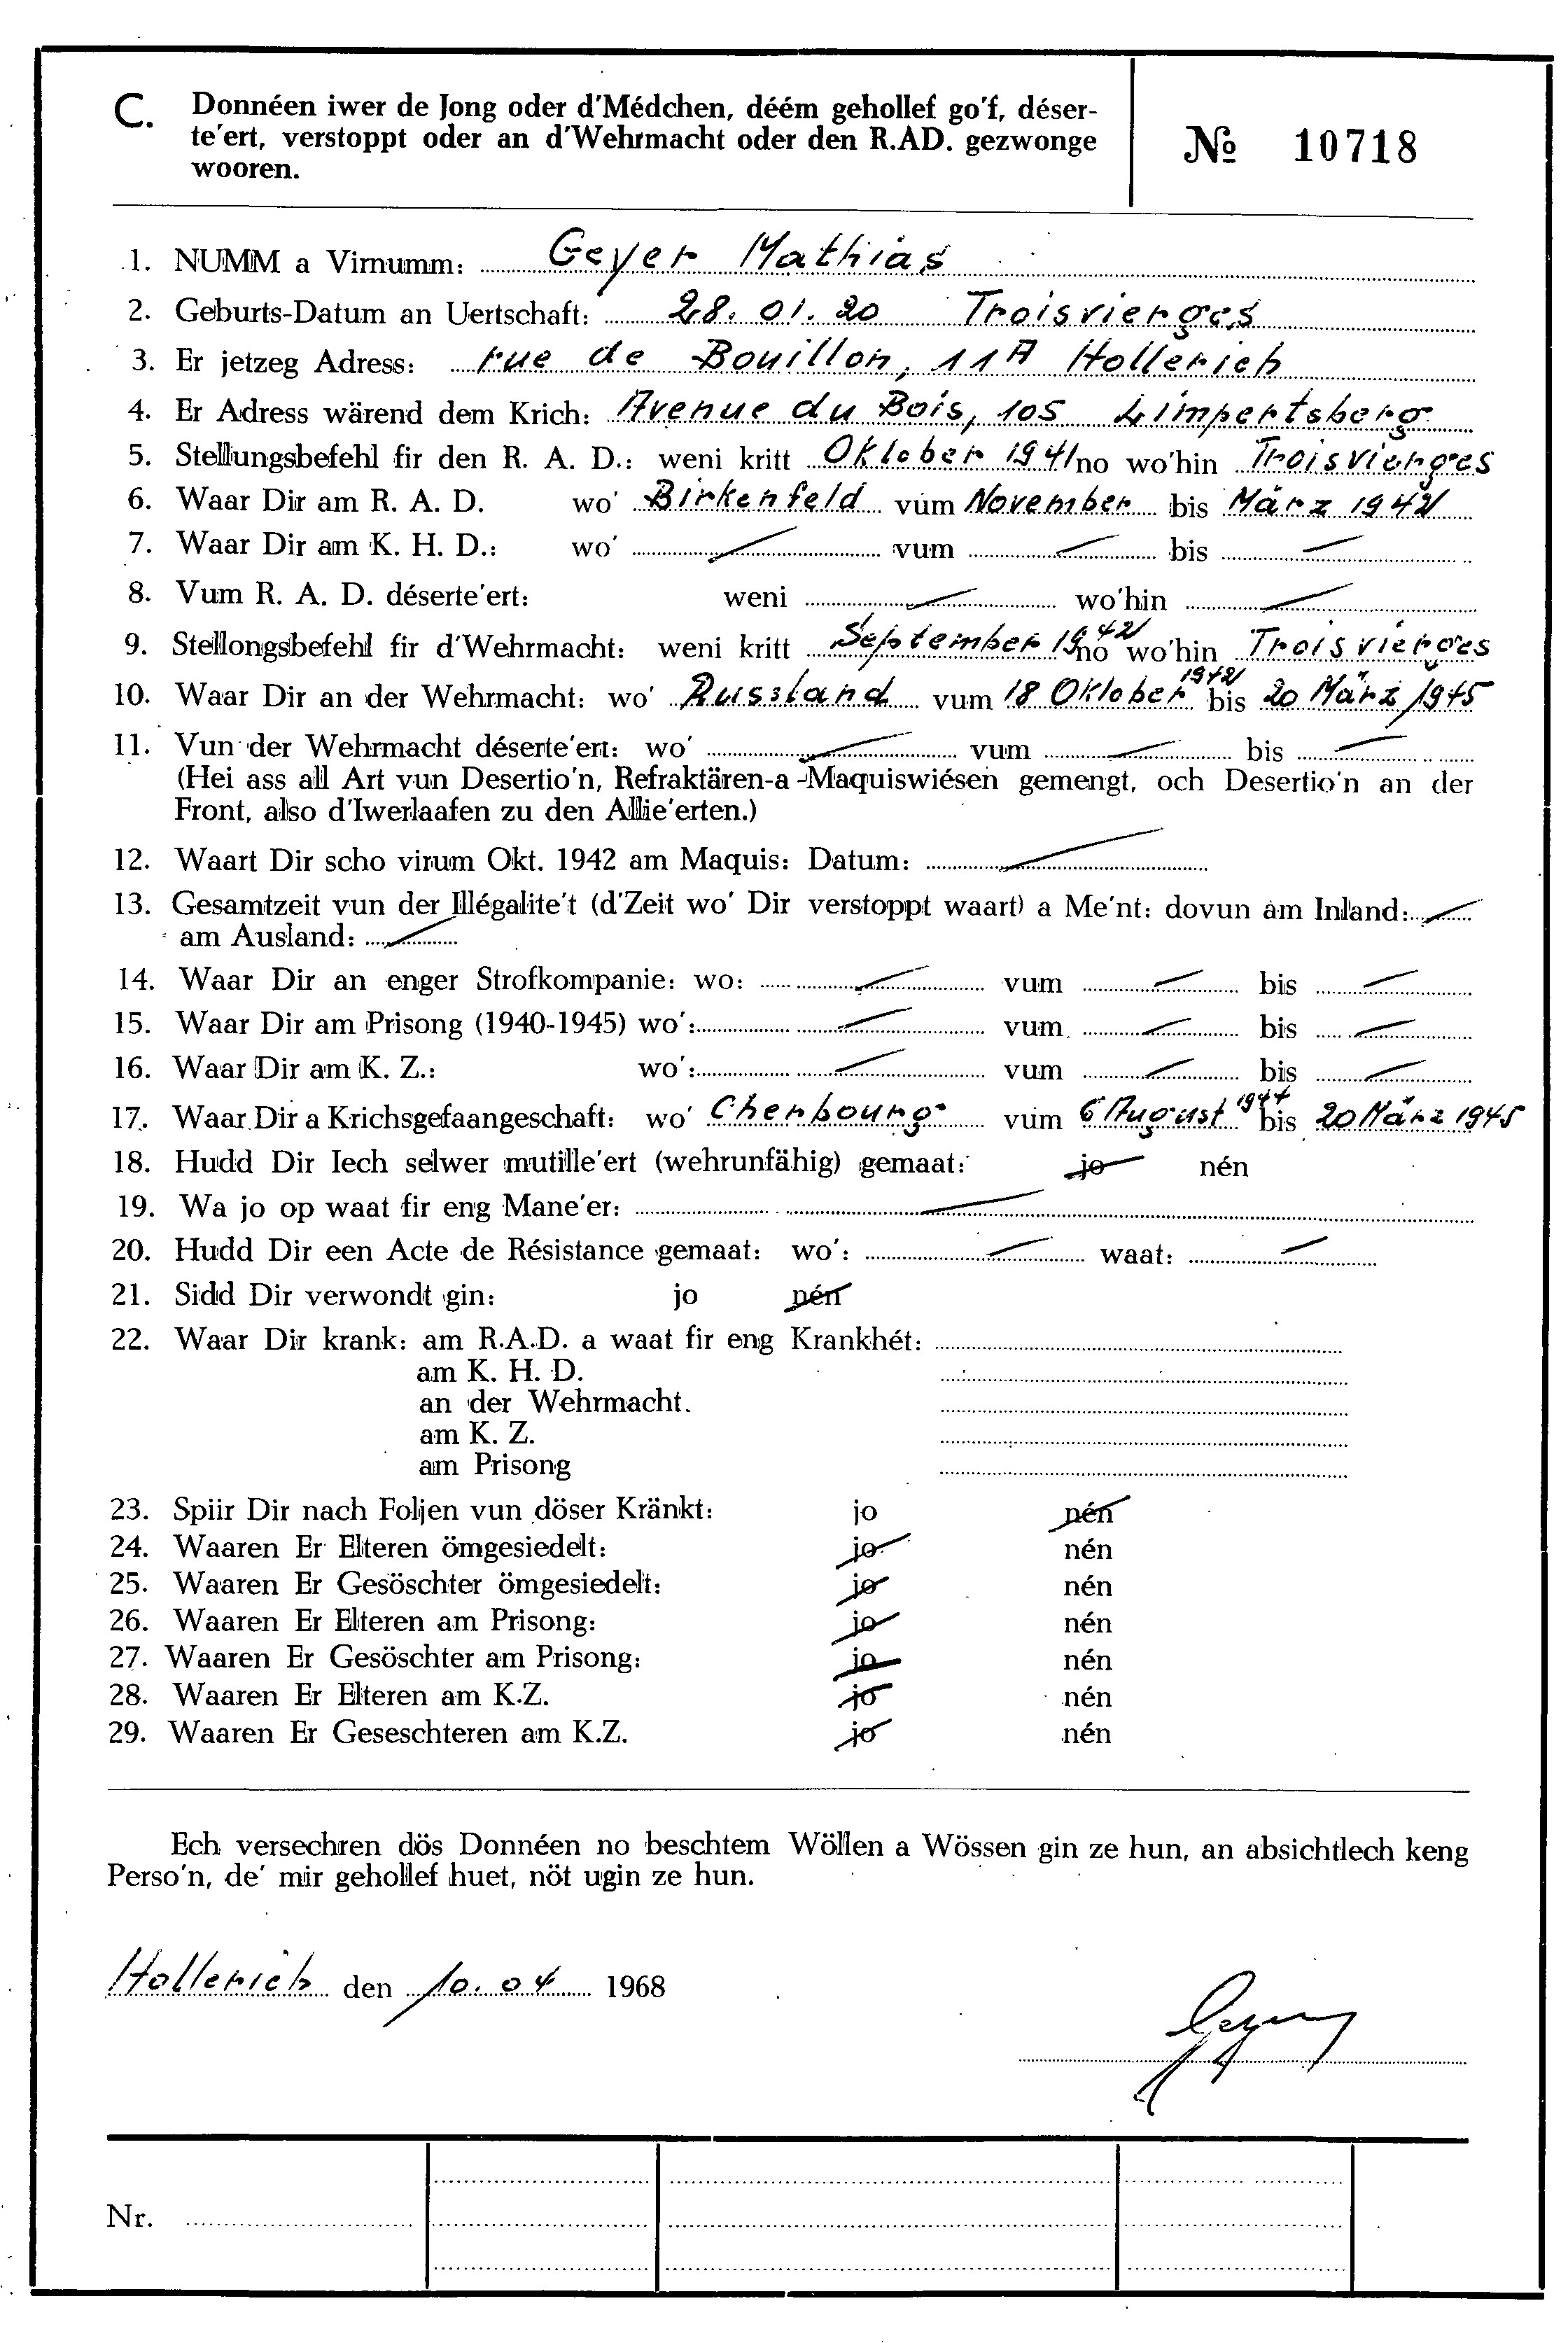 C. Donnéen iwer de Jong oder d'Médchen, déém gehollef go'f, déser-
te'ert, verstoppt oder an d'Wehrmacht oder den R.AD. gezwonge
wooren.
№ 10718
1. NUMM a Virnumm: Geyer Mathias
2. Geburts-Datum an Uertschaft: 28.01.20 Troisvierges
3. Er jetzeg Adress: rue de Bouillon, 11A Hollerich
4. Er Adress wärend dem Krich: Avenue du Bois, 105 Limpertsberg
5. Stellungsbefehl fir den R. A. D.: weni kritt Oktober 1941 no wo'hin Troisvierges
6. Waar Dir am R. A. D. wo' Birkenfeld vum November bis März 1942
7. Waar Dir am K. H. D.: wo' vum bis
8. Vum R. A. D. déserte'ert: weni wo'hin
9. Stellongsbefehl fir d'Wehrmacht: weni kritt September 1942 no wo'hin Troisvierges
10. Waar Dir an der Wehrmacht: wo' Russland vum 18 Oktober 1942 bis 20 März 1945
11. Vun der Wehrmacht déserte'ert: wo' vum bis
(Hei ass all Art vun Desertio'n, Refraktären-a-Maquiswiésen gemengt, och Desertio'n an der
Front, also d'Iwerlaafen zu den Allie'erten.)
12. Waart Dir scho virum Okt. 1942 am Maquis: Datum:
13. Gesamtzeit vun der Illégalite't (d'Zeit wo' Dir verstoppt waart) a Me'nt: dovun am Inland:
am Ausland:
14. Waar Dir an enger Strofkompanie: wo: vum bis
15. Waar Dir am Prisong (1940-1945) wo': vum bis
16. Waar Dir am K. Z.: wo': vum bis
17. Waar Dir a Krichsgefaangeschaft: wo' Cherbourg vum 6 August 1944 bis 20 März 1945
18. Hudd Dir Iech selwer mutille'ert (wehrunfähig) gemaat: jo nén
19. Wa jo op waat fir eng Mane'er:
20. Hudd Dir een Acte de Résistance gemaat: wo': waat:
21. Sidd Dir verwondt gin: jo nén
22. Waar Dir krank: am R.A.D. a waat fir eng Krankhét:
am K. H. D.
an der Wehrmacht.
am K. Z.
am Prisong
23. Spiir Dir nach Foljen vun döser Kränkt: jo nén
24. Waaren Er Elteren ömgesiedelt: jo nén
25. Waaren Er Gesöschter ömgesiedelt: jo nén
26. Waaren Er Elteren am Prisong: jo nén
27. Waaren Er Gesöschter am Prisong: jo nén
28. Waaren Er Elteren am K.Z. jo nén
29. Waaren Er Geseschteren am K.Z. jo nén
Ech versechren dös Donnéen no beschtem Wöllen a Wössen gin ze hun, an absichtlech keng
Perso'n, de' mir gehollef huet, nöt ugin ze hun.
Hollerich den 10.04 1968
Geyer
Nr.